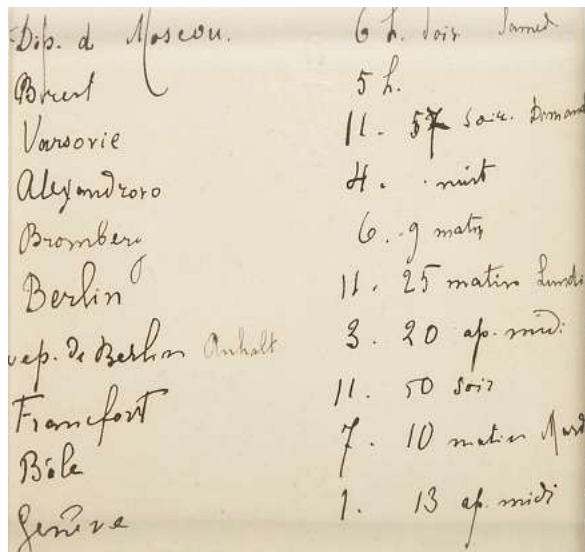 Dép. d Moscou. 6 h. soir Samed
Brest 5 h.
Varsovie 11. 57 soir. Dimanch
Alexandrovo 4. nuit
Bromberg 6. 9 matin
Berlin 11. 25 matin Lundi
Dep. de Berlin Anhalt 3. 20 ap. midi
Francfort 11. 50 soir
Bâle 7. 10 matin Mard
Genève 1. 13 ap. midi